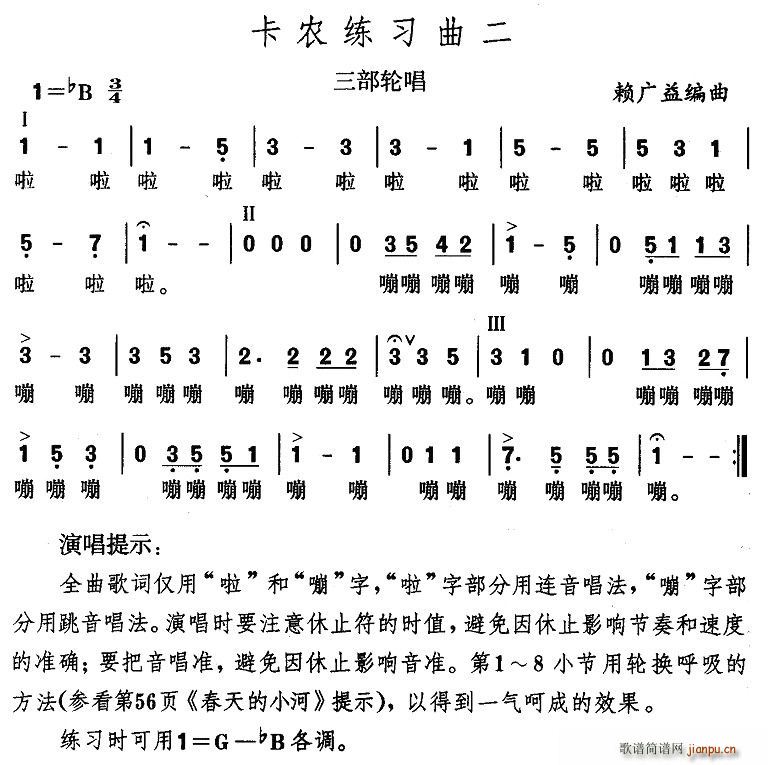 卡农练习曲二
三部轮唱
1=♭B 3/4
赖广益编曲
I
1 - 1 | 1 - 5̣ | 3 - 3 | 3 - 1 | 5 - 5 | 5 3 1 |
啦 啦 啦 啦 啦 啦 啦 啦 啦 啦 啦 啦 啦
II
5̣ - 7̣ | 1 - - | 0 0 0 | 0 35 42 | 1 - 5̣ | 0 5̣1 13 |
啦 啦 啦。 嘣嘣 嘣嘣 嘣 嘣 嘣嘣 嘣嘣
III
3 - 3 | 3 5 3 | 2· 2 22 | 3 ∨ 3 5 | 3 1 0 | 0 13 27̣ |
嘣 嘣 嘣 嘣嘣 嘣 嘣 嘣嘣 嘣 嘣 嘣。嘣 嘣 嘣嘣 嘣嘣
1 5̣ 3̣ | 0 3̣5̣ 5̣1 | 1 - 1 | 0 1 1 | 7̣· 5̣ 5̣5̣ | 1 - - :‖
嘣 嘣 嘣 嘣嘣 嘣嘣 嘣 嘣 嘣 嘣 嘣 嘣 嘣嘣 嘣。
演唱提示：
全曲歌词仅用“啦”和“嘣”字，“啦”字部分用连音唱法，“嘣”字部
分用跳音唱法。演唱时要注意休止符的时值，避免因休止影响节奏和速度
的准确；要把音唱准，避免因休止影响音准。第1～8小节用轮换呼吸的
方法(参看第56页《春天的小河》提示)，以得到一气呵成的效果。
练习时可用1=G—♭B各调。
歌谱简谱网 jianpu.cn